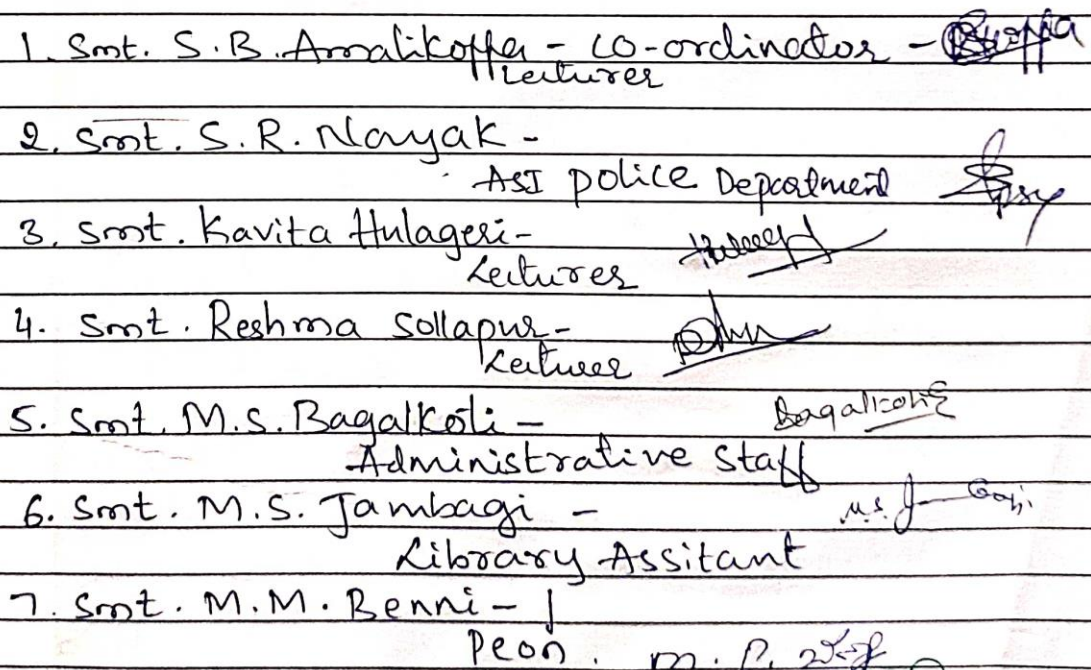 1. Smt. S.B. Amalikoppa - Co-ordinator -
Lecturer
2. Smt. S.R. Nayak -
ASI police Department
3. Smt. Kavita Hulageri-
Lecturer
4. Smt. Reshma Sollapur-
Lecturer
5. Smt. M.S. Bagalkoti - Bagalkoti
Administrative Staff
6. Smt. M.S. Jambagi - M.S.
Library Assitant
7. Smt. M.M. Benni -
Peon.